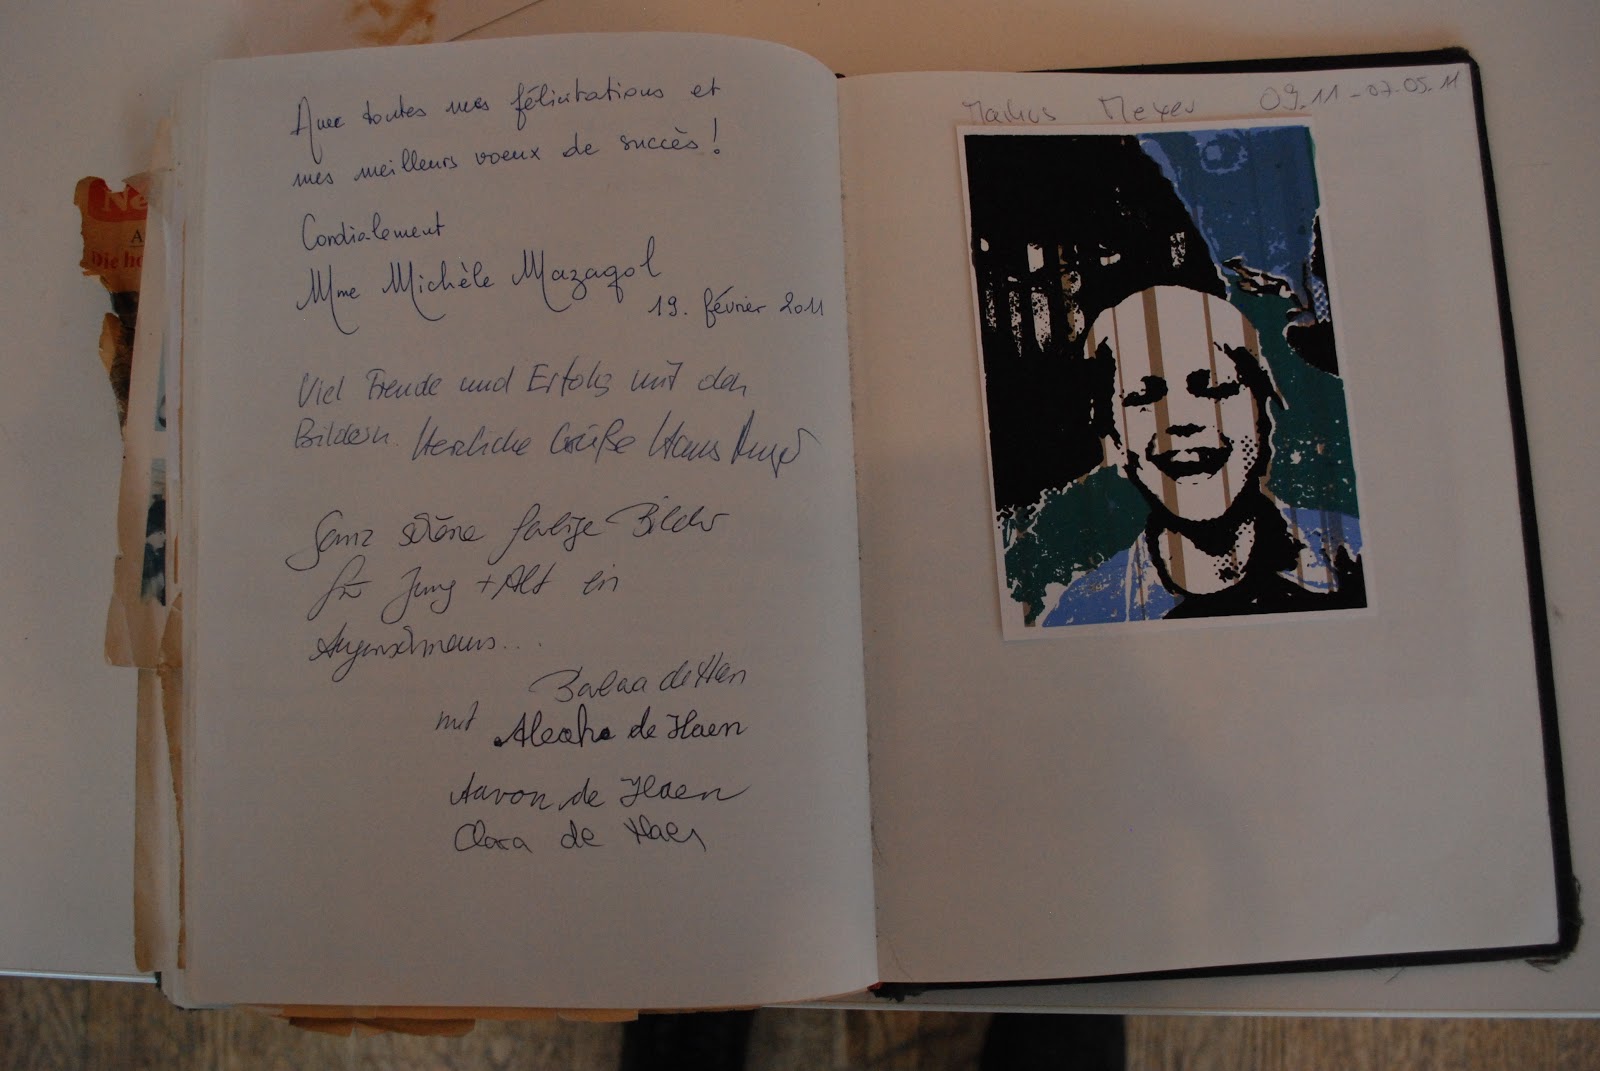 Ne
A
Die he
Avec toutes mes félicitations et
mes meilleurs voeux de succès !
Cordialement
Mme Michèle Mazagol
19. février 2011
Viel Freude und Erfolg mit den
Bildern. Herzliche Grüße Hans
Ganz schöne farbige Bilder
für Jung + Alt ein
Augenschmaus...
de Haen
mit de Haen
Aaron de Haen
Clara de Haen
Markus Meyer 09.11 - 07.05.11